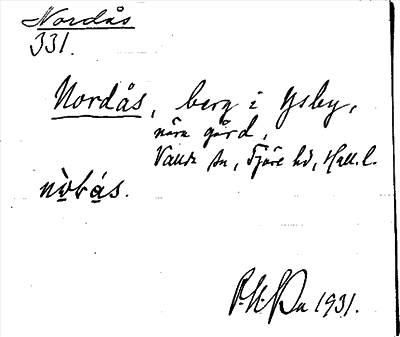 Nordås
331.
Nordås, berg i Ysby,
nära gård,
Valla sn, Fjäre hd, Hall. l.
nò̱rbá̱s.
1931.